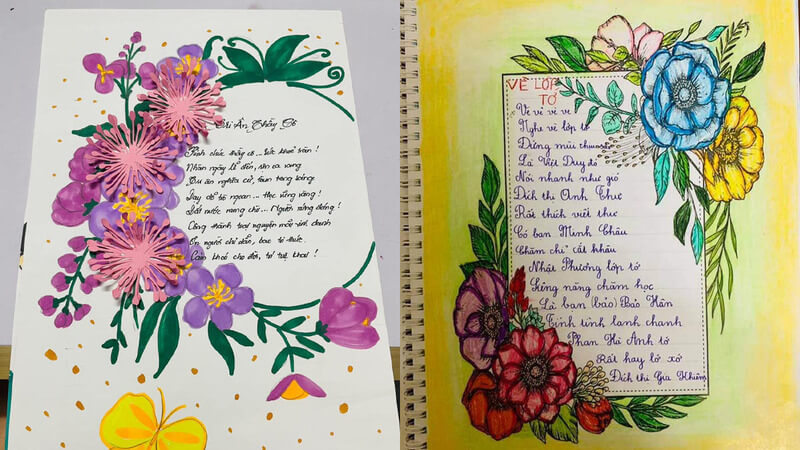 Tri Ân Thầy Cô
Kính chúc thầy cô ... sức khoẻ tràn !
Nhân ngày lễ đến, xin ca vang
Ơn ân nghĩa cử, bao trang sống
dạy dỗ trò ngoan ... học vững vàng !
Đất nước mong chờ ... Người xứng đáng !
Công thành trai nguyện mãi vinh danh
Ơn người chỉ dẫn, bao tri thức
Cảm khoá cho đời, tớ
VÈ LỚP
TỚ
Vè vẻ vè ve
Nghe vè lớp tớ
Đứng mũi
Là Việt Duy đó
Nói nhanh như gió
Đích thị Anh Thư
Rất thích viết thư
Có bạn Minh Châu
Chăm chỉ cắt khâu
Nhật Phương lớp tớ
Siêng năng chăm học
Là bạn (bảo) Bảo Hân
Tính tình lanh chanh
Phan Hà Anh tớ
Rất hay lớ xớ
Đích thị Gia Khiêm